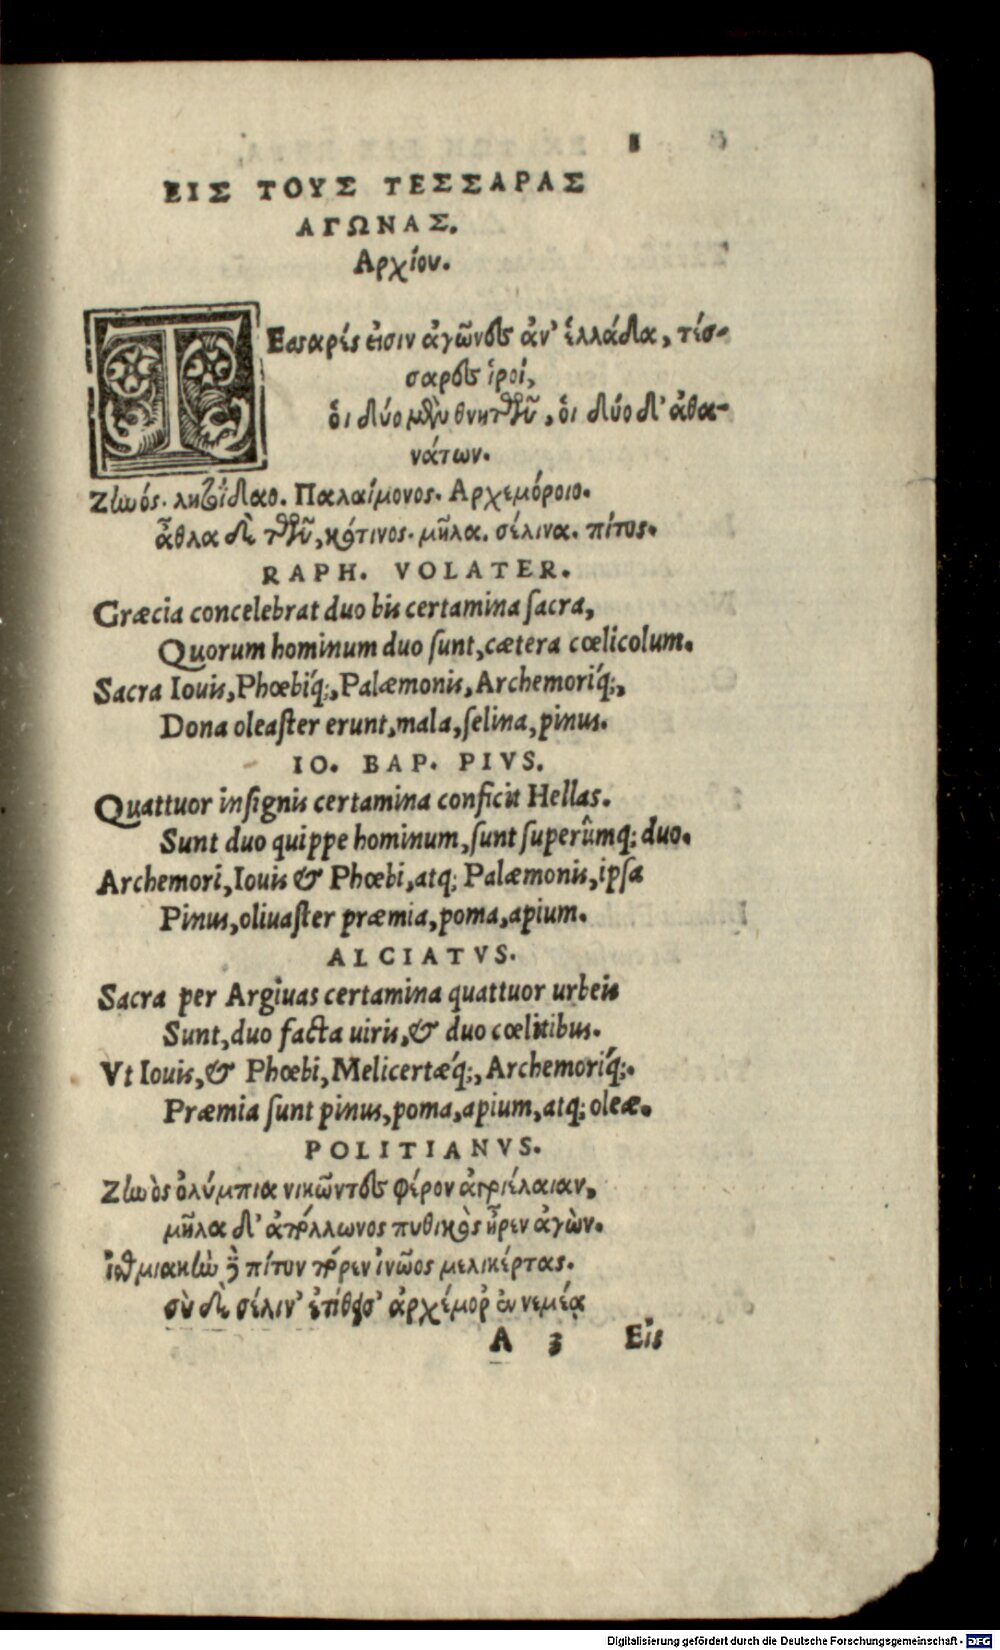 1
ΕΙΣ ΤΟΥΣ ΤΕΣΣΑΡΑΣ
ΑΓΩΝΑΣ.
Αρχίου.
ΤΕσσαρές εἰσιν ἀγῶνες ἀν' ἑλλάδα, τέσ-
σαρες ἱροί,
ὁι δύο μὲν θνητῶν, ὁι δύο δ' ἀθα-
νάτων.
Ζωός. λητοΐδαο. Παλαίμονος. Αρχεμόροιο.
ἆθλα δὲ τῶν, κότινος. μῆλα. σέλινα. πίτυς.
RAPH. VOLATER.
Græcia concelebrat duo bis certamina sacra,
Quorum hominum duo sunt, cætera cœlicolum.
Sacra Iouis, Phœbiq́;, Palæmonis, Archemoriq́;,
Dona oleaster erunt, mala, selina, pinus.
IO. BAP. PIVS.
Quattuor insignis certamina conficit Hellas.
Sunt duo quippe hominum, sunt superûmq; duo.
Archemori, Iouis & Phœbi, atq; Palæmonis, ipsa
Pinus, oliuaster præmia, poma, apium.
ALCIATVS.
Sacra per Argiuas certamina quattuor urbeis
Sunt, duo facta uiris, & duo cœlitibus.
Vt Iouis, & Phœbi, Melicertæq́;, Archemoriq́;.
Præmia sunt pinus, poma, apium, atq; oleæ.
POLITIANVS.
Ζωὸς ὀλύμπια νικῶντες φέρον ἀγριέλαιαν,
μῆλα δ' ἀπόλλωνος πυθικὸς ἦρεν ἀγὼν.
ἰσθμιακὴν ἢ πίτυν πόρεν ἰνῶος μελικέρτας.
σὺ δὲ σέλιν' ἐπίθες' ἀρχέμορ ἐν νεμέᾳ
A 3 Εἰς
Digitalisierung gefördert durch die Deutsche Forschungsgemeinschaft - DFG